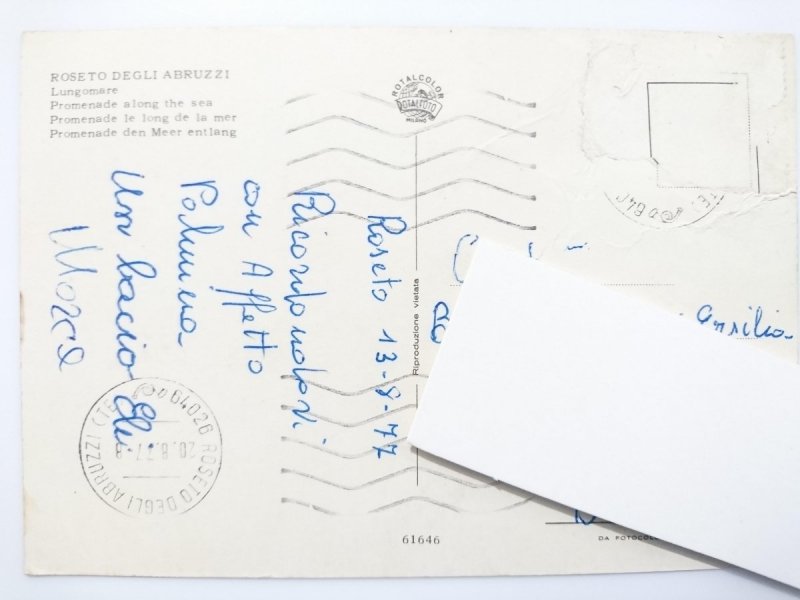 ROSETO DEGLI ABRUZZI
Lungomare
Promenade along the sea
Promenade le long de la mer
Promenade den Meer entlang
ROTALCOLOR
ROTALFOTO
MILANO
Roseto 13-8-77
Ricordandovi
con Affetto
Palmina
Un bacio Eli
Riproduzione vietata
64026 ROSETO DEGLI ABRUZZI (TE)
20.8.77
61646
DA FOTOCOL